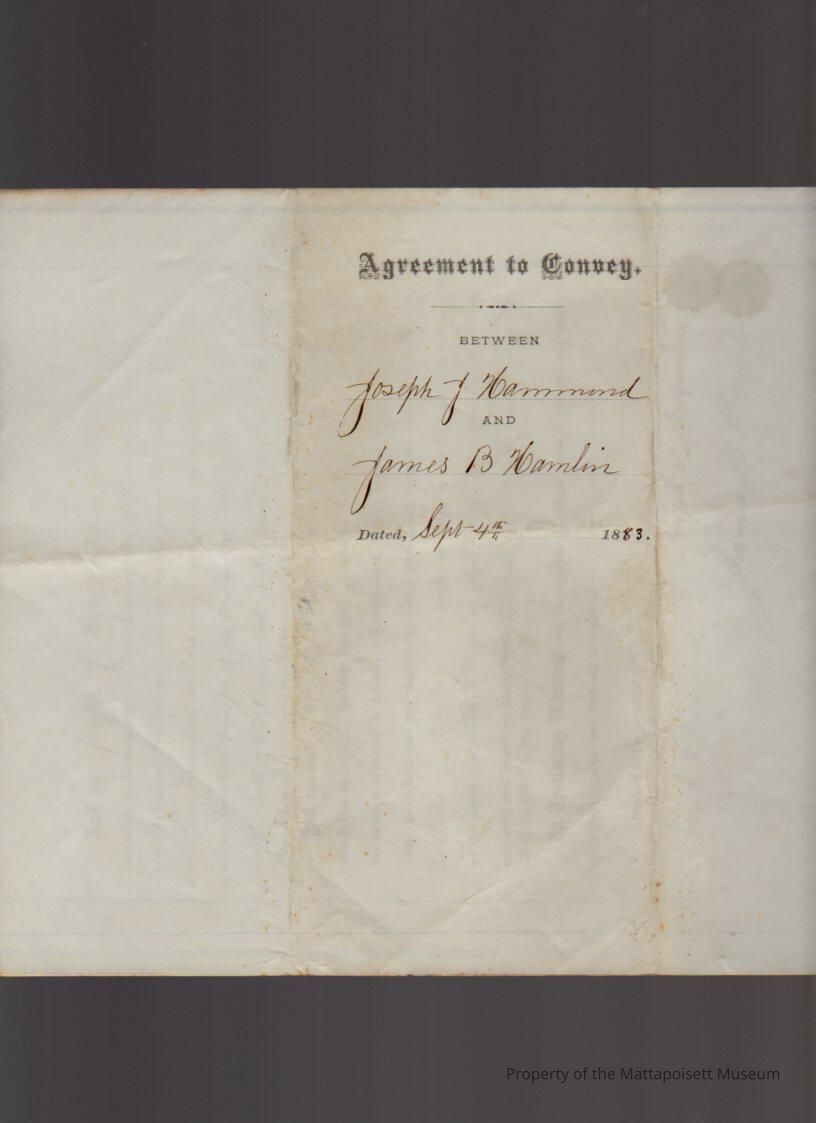 Agreement to Convey.
BETWEEN
Joseph J Hammond
AND
James B Hamlin
Dated, Sept 4th 1883.
Property of the Mattapoisett Museum